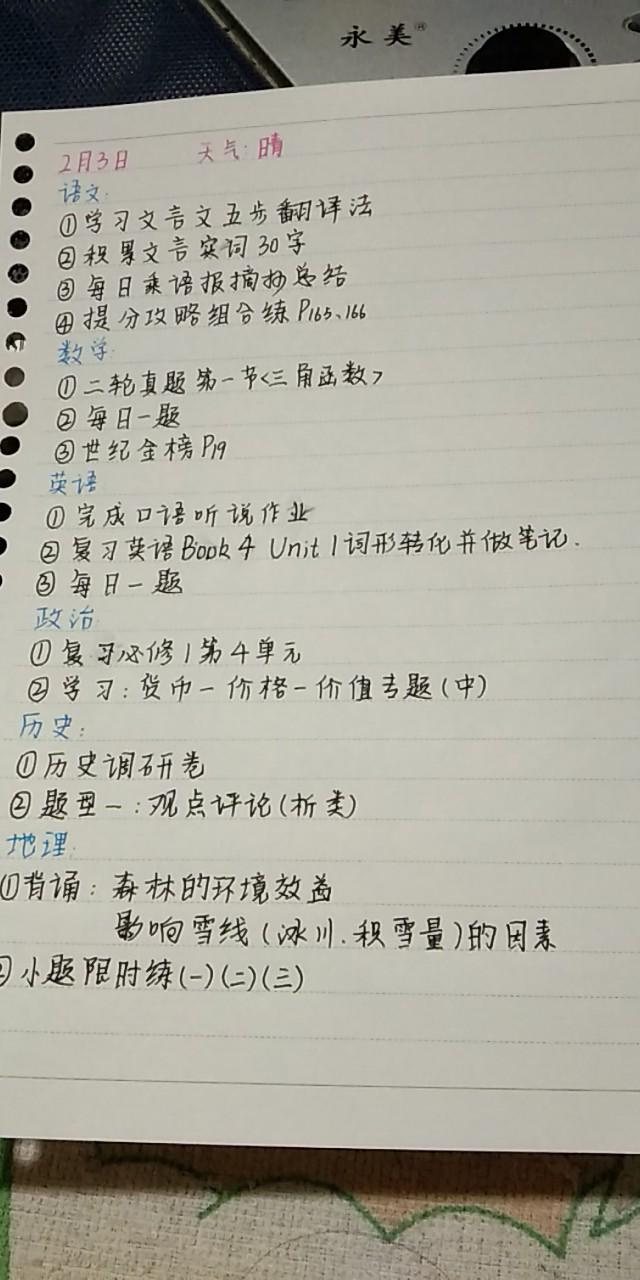 永美®
2月3日 天气:晴
语文:
①学习文言文五步翻译法
②积累文言实词30字
③每日乘语报摘抄总结
④提分攻略组合练P165、166
数学:
①二轮真题第一节<三角函数>
②每日一题
③世纪金榜P19
英语
①完成口语听说作业
②复习英语Book 4 Unit 1词形转化并做笔记.
③每日一题
政治
①复习必修1第4单元
②学习:货币-价格-价值专题(中)
历史:
①历史调研卷
②题型一:观点评论(析类)
地理:
①背诵:森林的环境效益
影响雪线(冰川.积雪量)的因素
②小题限时练(一)(二)(三)